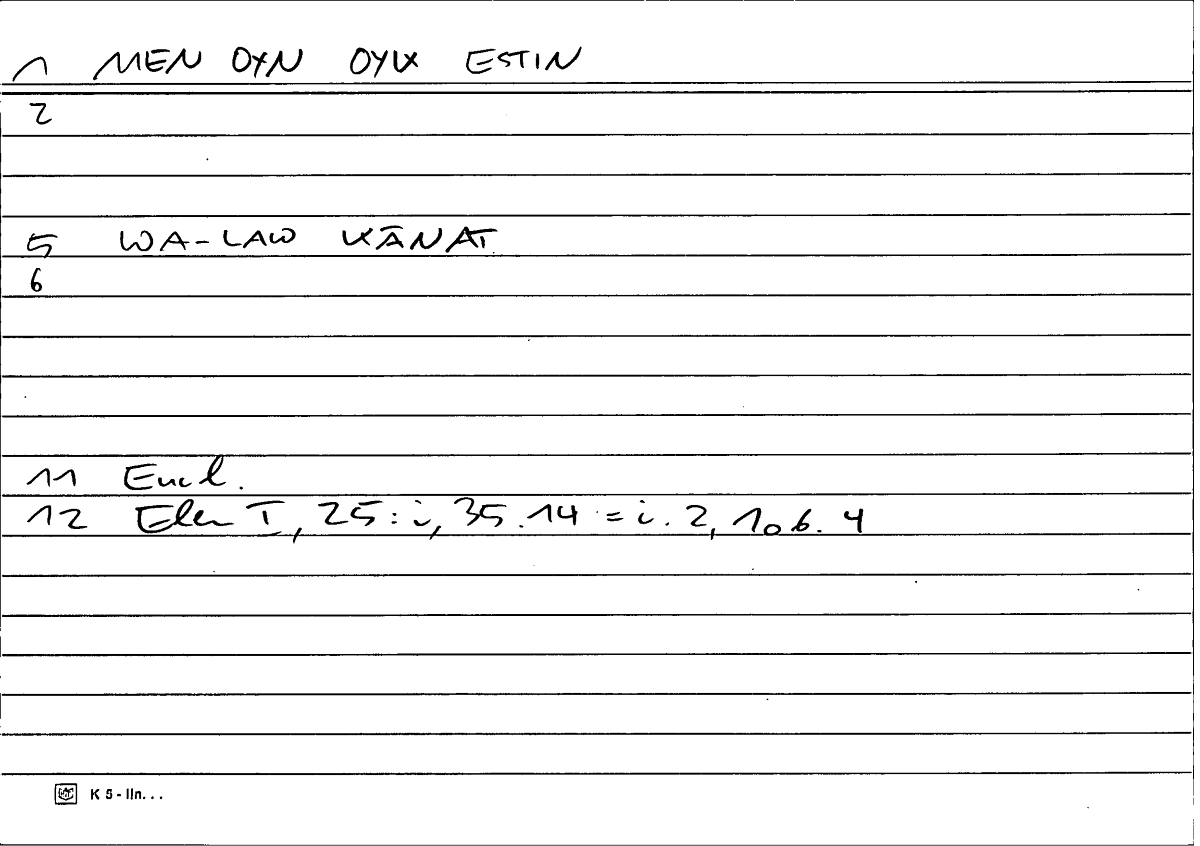 1 MEN OYN OYK ESTIN
2
5 WA-LAW KĀNAT
6
11 Eucl.
12 Elem I, 25: i, 35.14 = i. 2, 106. 4
K 5 - lin. . .